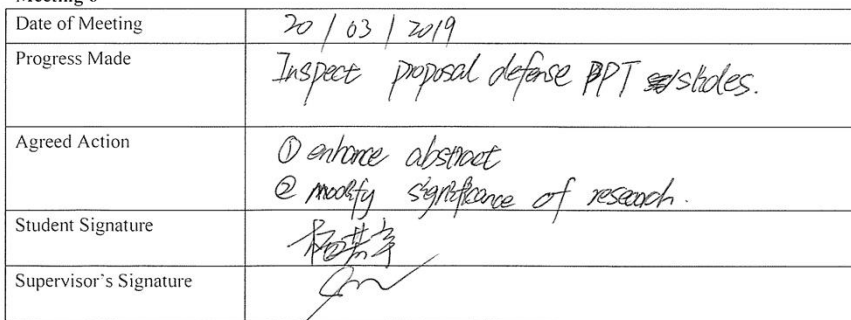 Date of Meeting 20 / 03 / 2019
Progress Made Inspect proposal defense PPT slides.
Agreed Action ① enhance abstract
② modify significance of research.
Student Signature
Supervisor's Signature